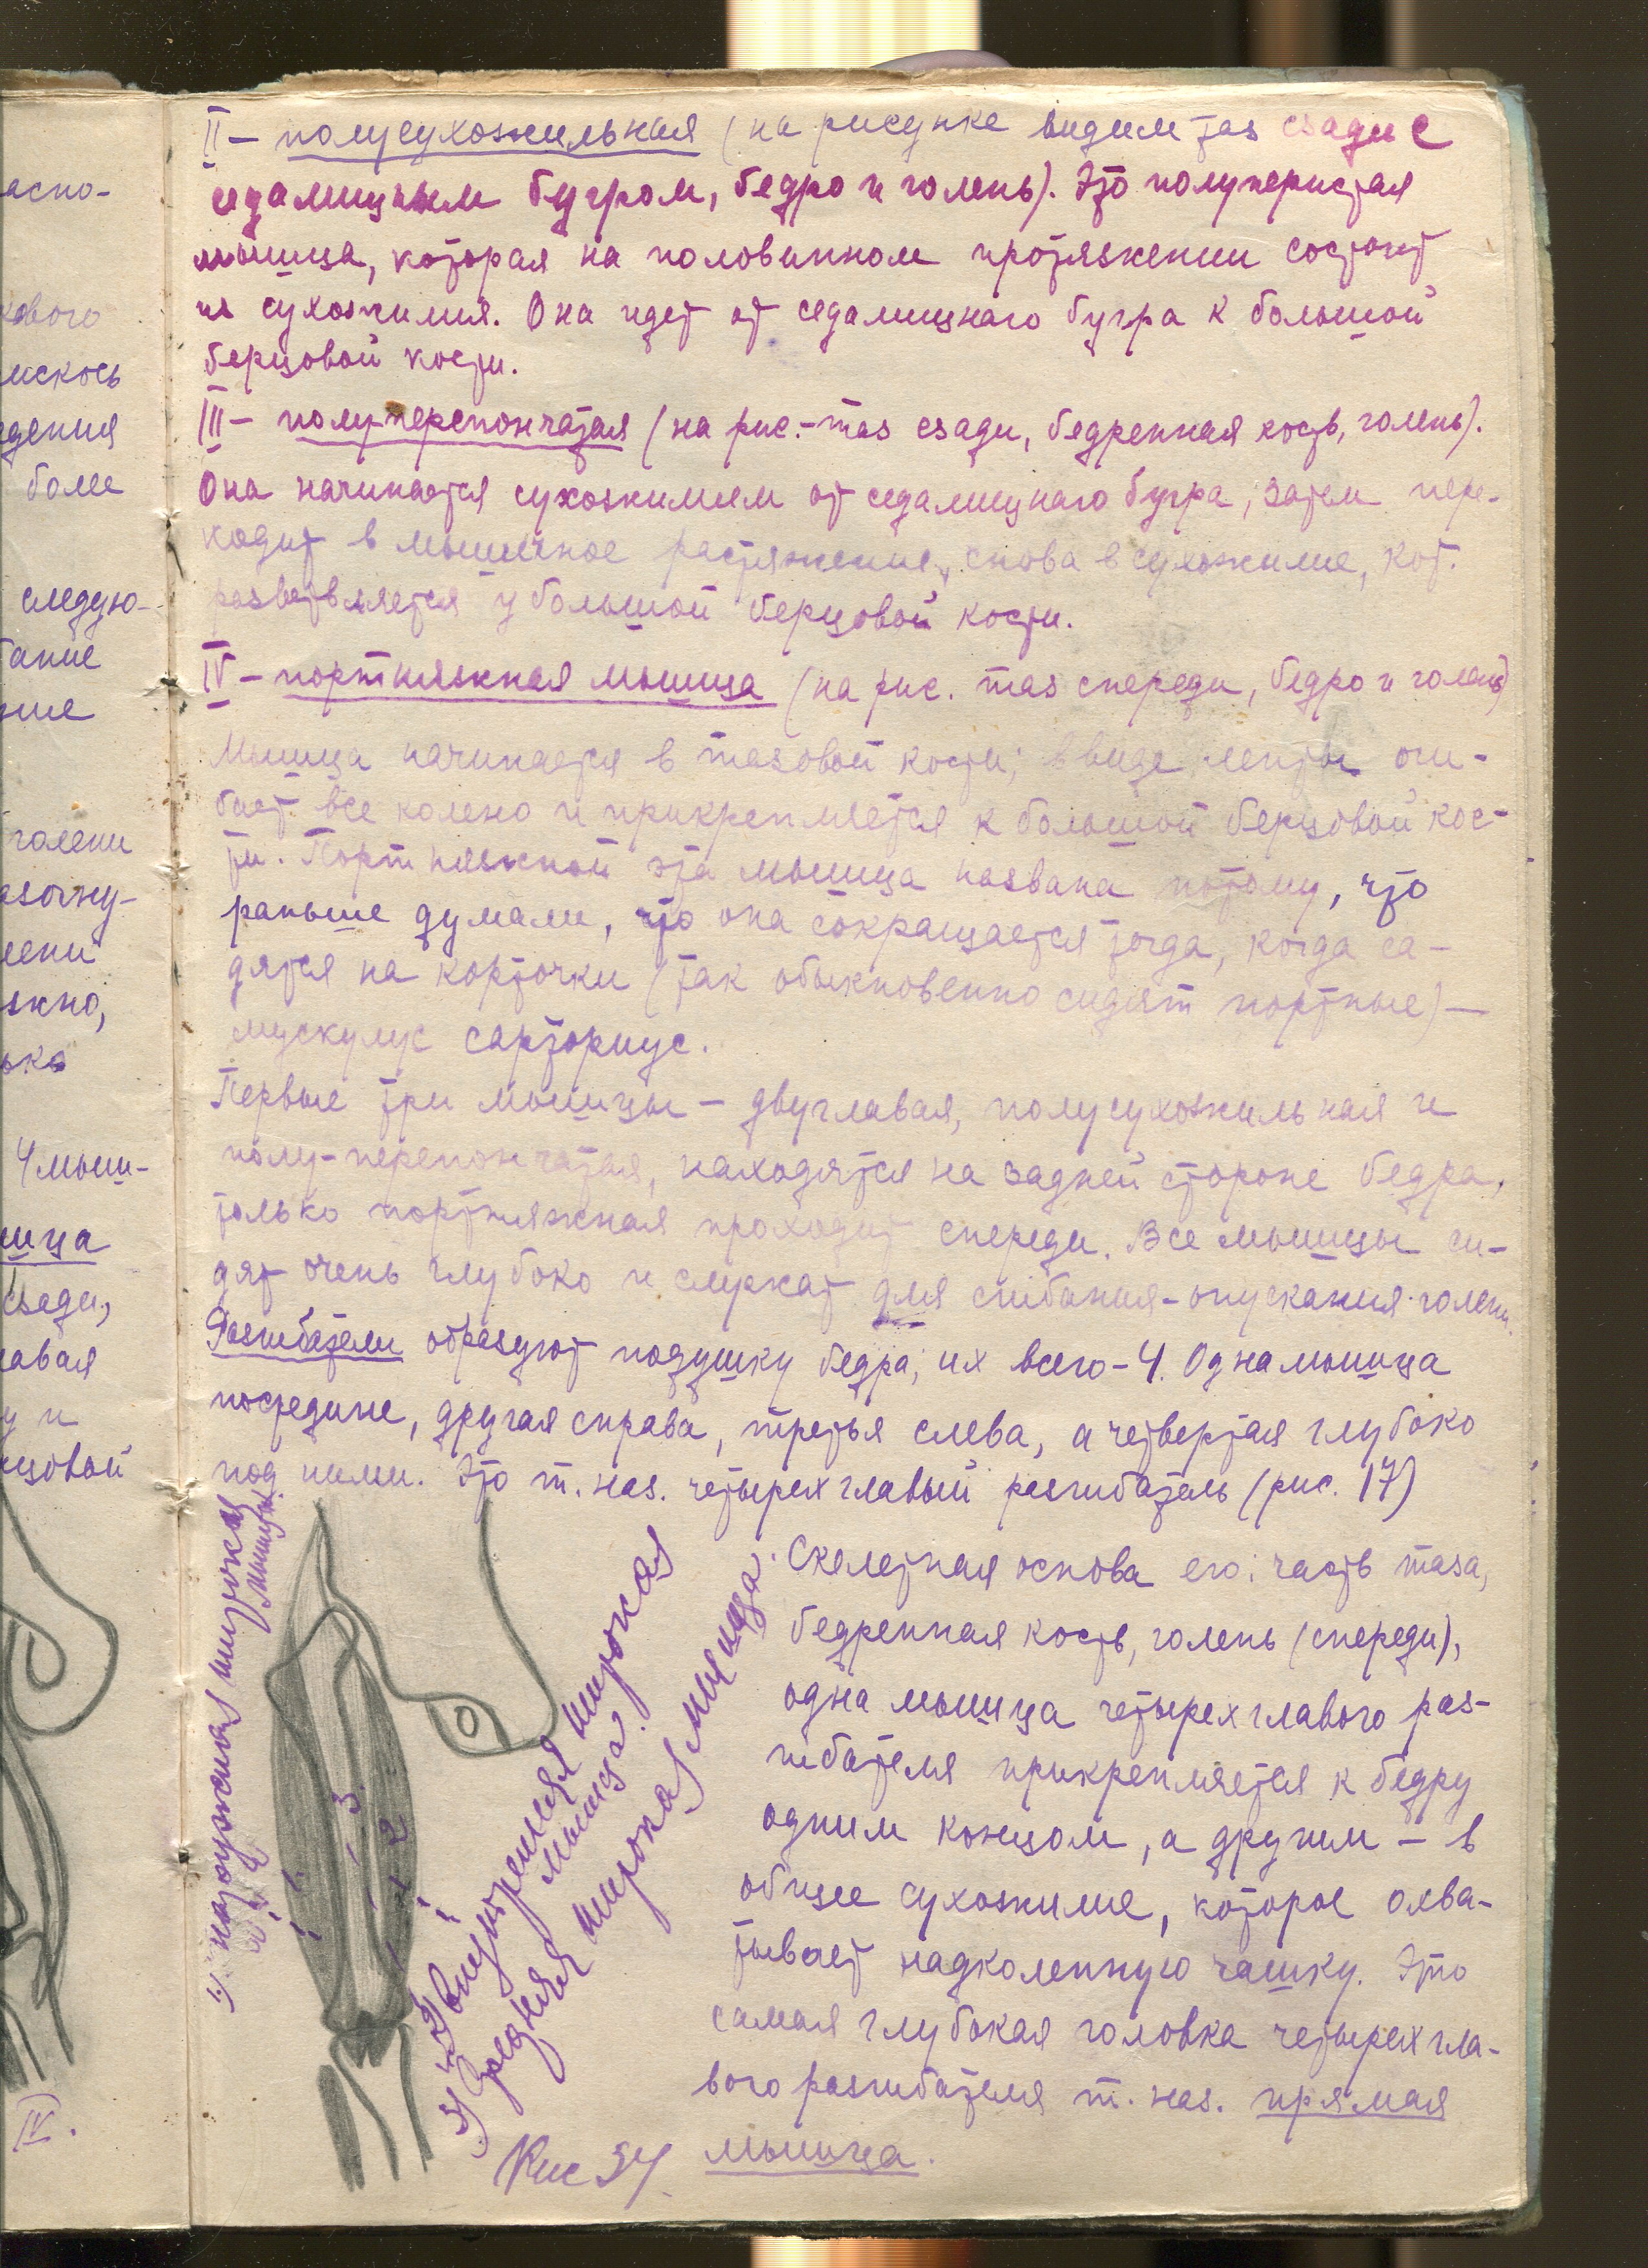 аспо-
кового
искось
дения
более
следую-
бание
ние
голени
разогну-
лени
жно,
ько
4 мыш-
шца
сзади,
лавая
у и
рцовой
IV.
II – полусухожильная (на рисунке видим таз сзади с
седалищным бугром, бедро и голень). Это полуперистая
мышца, которая на половинном протяжении состоит
из сухожилия. Она идет от седалищнаго бугра к большой
берцовой кости.
III – полу-перепончатая (на рис.- таз сзади, бедренная кость, голень).
Она начинается сухожилием от седалищнаго бугра, затем пере-
ходит в мышечное растяжение, снова в сухожилие, кот.
разветвляется у большой берцовой кости.
IV – портняжная мышца (на рис. таз спереди, бедро и голень)
Мышца начинается в тазовой кости; в виде ленты оги-
бает все колено и прикрепляется к большой берцовой кос-
ти. Портняжной эта мышца названа потому, что
раньше думали, что она сокращается тогда, когда са-
дятся на корточки (так обыкновенно сидят портные) —
мускулус сарториус.
Первые три мышцы – двуглавая, полусухожильная и
полу-перепончатая, находятся на задней стороне бедра,
только портняжная проходит спереди. Все мышцы си-
дят очень глубоко и служат для сгибания-опускания голени.
Разгибатели образуют подушку бедра; их всего – 4. Одна мышца
посредине, другая справа, третья слева, а четвертая глубоко
под ними. Это т. наз. четырехглавый разгибатель (рис. 17)
Скелетная основа его: часть таза,
бедренная кость, голень (спереди),
одна мышца четырехглавого раз-
гибателя прикрепляется к бедру
одним концом, а другим – в
общее сухожилие, которое охва-
тывает надколенную чашку. Это
самая глубокая головка четырехгла-
вого разгибателя т. наз. прямая
мышца.
1) наружная широкая
мышца.
2) внутренняя широкая
мышца.
3) средняя широкая мышца.
1.
2
3.
Рис 34.